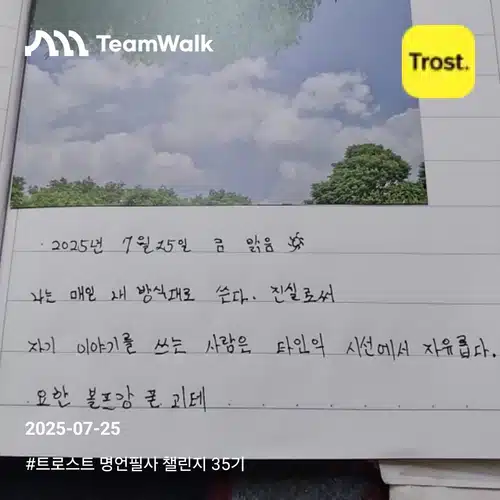 TeamWalk
Trost.
· 2025년 7월 25일 금 맑음
나는 매일 내 방식대로 쓴다. 진실로써
자기 이야기를 쓰는 사람은 타인의 시선에서 자유롭다.
· 요한 볼프강 폰 괴테 . . . . . . .
2025-07-25
#트로스트 명언필사 챌린지 35기